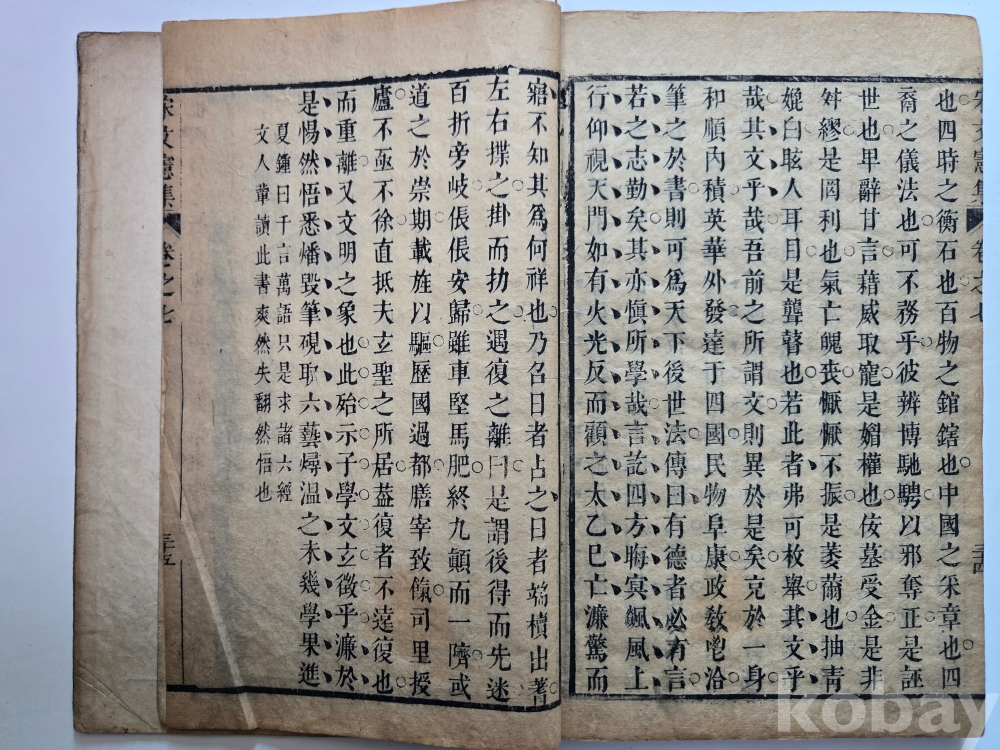 也四時之衡石也百物之錧鎋也中國之采章也四
裔之儀法也可不務乎彼辨博馳騁以邪奪正是誣
世也卑辭甘言藉威取寵是媚權也佞墓受金是非
舛繆是罔利也氣亡魄喪懨懨不振是萎薾也抽青
媲白眩人耳目是聾瞽也若此者弗可枚舉其文乎
哉其文乎哉吾前之所謂文則異於是矣克於一身
和順內積英華外發達于四國民物阜康政敎咜洽
筆之於書則可爲天下後世法傳曰有德者必有言
若之志勤矣其亦愼所學哉言訖四方晦冥飆風上
行仰視天門如有火光反而顧之太乙已亡濂驚而
寤不知其爲何祥也乃召日者占之日者端櫝出蓍
左右揲之掛而扐之遇復之離曰是謂後得而先迷
百折旁岐倀倀安歸雖車堅馬肥終九顚而一隮或
道之於崇期載旌以驅歷國過都膳宰致餼司里授
廬不亟不徐直抵夫玄聖之所居葢復者不遠復也
而重離又文明之象也此殆示子學文玄徵乎濂於
是惕然悟悉燔毀筆硯取六藝燖溫之未幾學果進
夏鍾曰千言萬語只是求諸六經
文人輩讀此書爽然失翻然悟也
宋文憲集
卷之七
三十四
宋文憲集
卷之七
三十五
kobay